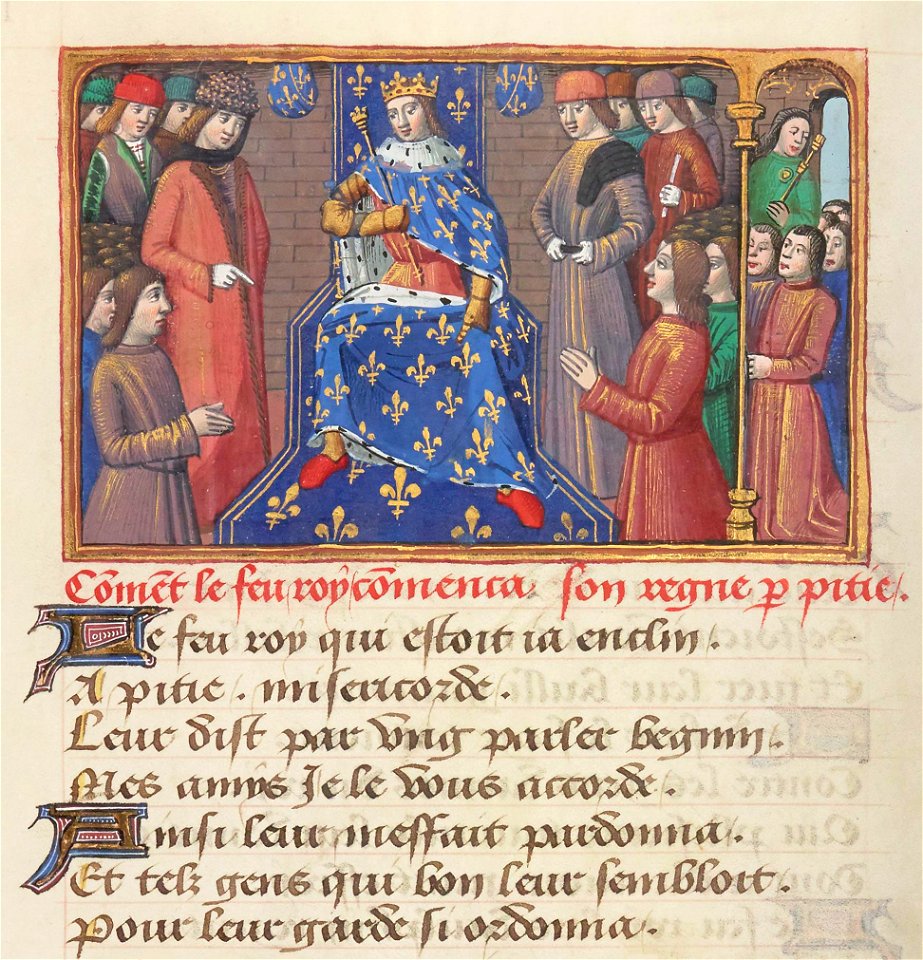 Cōmēt le feu roy cōmenca son regne p pitie.
Le feu roy qui estoit ia enclin.
A pitie. misericorde.
Leur dist par vng parler begnin.
Mes amys Je le vous accorde.
Ainsi leur meffait pardonna.
Et telz gens qui bon leur sembloit.
Pour leur garde si ordonna.